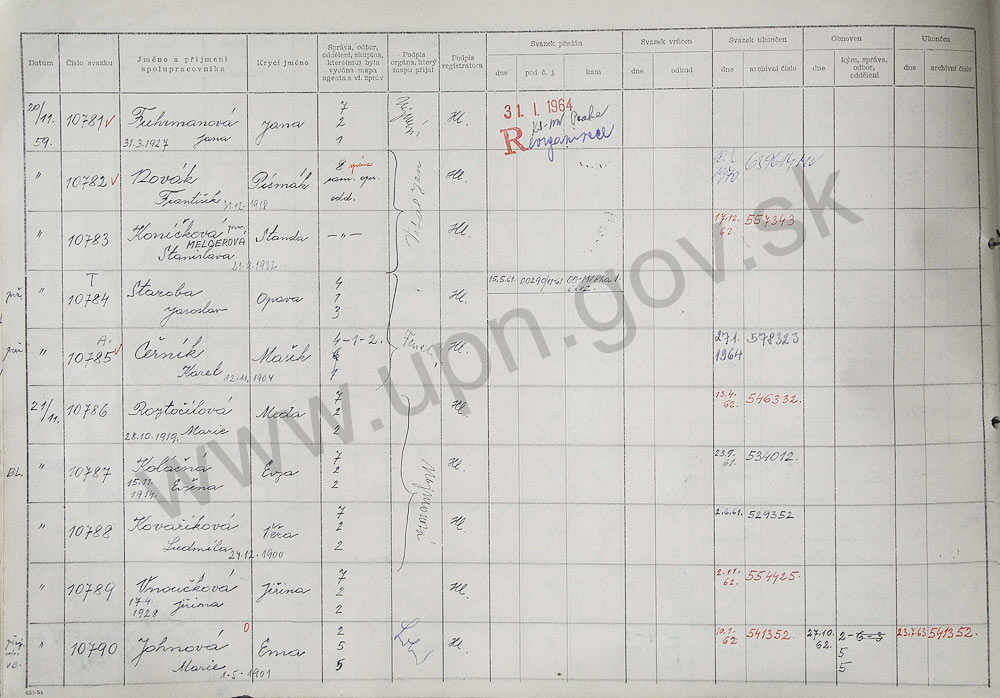 Datum
Číslo svazku
Jméno a příjmení
spolupracovníka
Krycí jméno
Správa, odbor,
oddělení, skupina,
které(mu) byla
vydána mapa
agenta s vl. zpráv
Podpis
orgána, který
mapu přijal
Podpis
registrátora
Svazek předán
dne
pod č. j.
kam
Svazek vrácen
dne
odkud
Svazek ukončen
dne
archivní číslo
Obnoven
dne
kým, správa,
odbor,
oddělení
Ukončen
dne
archivní číslo
20/11. 59.
10781
Fuhrmanová
31.3.1927 Jana
Jana
7
2
1
Hl.
31. I. 1964
R
eorganisace
" 10782
Novák
František 31.12.1918
Písmák
8 správa
sam. oper.
odd.
Hl.
1970
" 10783
Koníčková
MELGEROVA
Stanislava
Standa
— " —
Hl.
17.12. 62.
557343
T
" 10784
Staroba
Jaroslav
Opava
4
1
3
Hl.
15.5.61.
" 10785
A.
Černík
Karel 12.11.1904
Mařík
4-1-2.
1
Hl.
27.1. 1964
578323
21/11.
10786
Roztočilová
28.10.1919. Marie
Meda
7
2
2
Hl.
13.4. 62.
546332.
BL " 10787
Kolačná
15.11. 1914. Evžena
Evža
7
2
2
Hl.
23.9. 61.
534012.
" 10788
Kovaříková
Ludmila 24.12.1900
Věra
7
2
2
Hl.
2.6.61.
529352
" 10789
Vnoučková
17.4. 1928 Jiřina
Jiřina
7
2
2
Hl.
2.11. 62.
554925.
" 10790
0
Johnová
Marie 1.5.1901
Ema
2
5
5
Hl.
10.1. 62.
541352.
27.10. 62.
5
5
23.7.63
541352.
www.upn.gov.sk